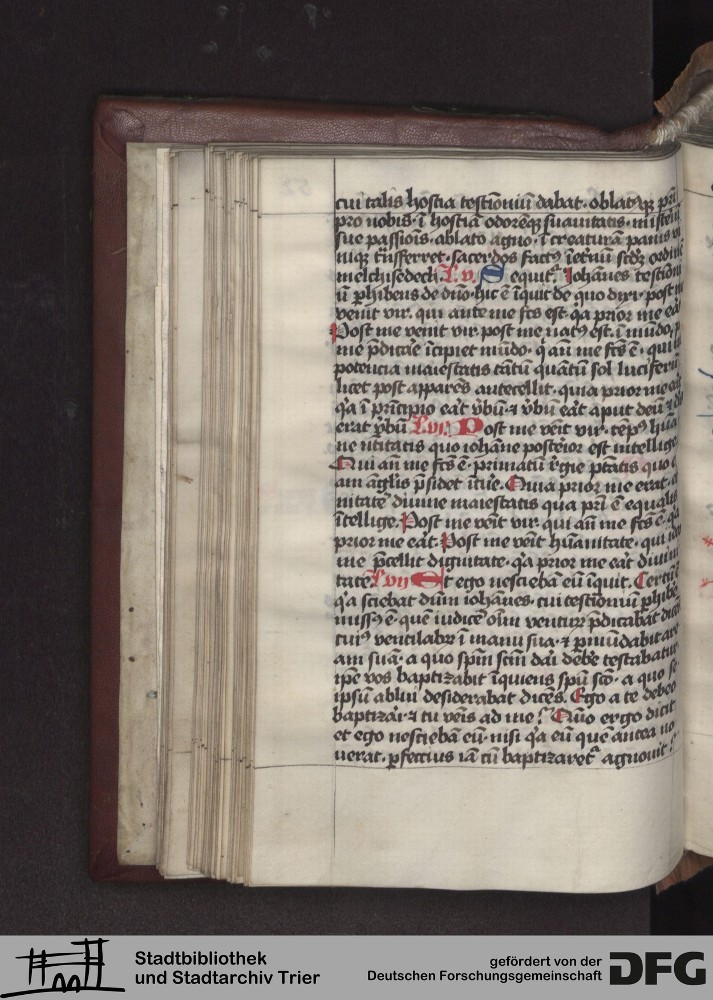 cui talis hostia testioniu dabat. oblatqꝫ pri
pro nobis. i hostia odoreqꝫ suauitatis. misteri
sue passiois. ablato agno. i creatura panis
niqꝫ tnsferret. sacerdos fact⁹ ieternu scdꝫ ordine
melchisedech. L.v. Sequitr. Iohanes testioni
u phibens de dno. hic e iquit de quo dixi. post
venit vir. qui ante me fcs est. qa prior me eat
Post me venit vir. post me nat⁹ est. i mudo,
me pdicare icipiet mudo. q an me fcs e. qui
potencia maiestatis tatu quatu sol luciferu
licet post appares antecellit. quia prior me eat
qa i principio eat vbu. ⁊ vbu eat aput deu
erat vbu Lvi. Post me veit vir. tepꝰ
ne utitatis quo iohane posterior est intellige
Qui an me fcs e. primatu rgie ptatis quo
am agłis psidet itue. Quia prior me erat.
nitate diuine maiestatis qua pri e equalis
itellige. Post me veit vir. qui an me fcs e. qa
prior me eat. Post me veit humanitate. qui
me pcellit dignitate. qa prior me eat diuini
tate. Lvij Et ego nescieba eu iquit. Certu e
qa sciebat dum iohanes. cui testioniu phibe
miss⁹ e. que iudice olim ventur pdicabat
cui⁹ ventilabr i manu sua. ⁊ pmudabit are
am sua. a quo spm scm dai debe testabatur
ipe vos baptizabit iquiens spu sco. a quo se
ipsu ablui desiderabat dices. Ego a te debeo
baptizar. ⁊ tu veis ad me? Quo ergo dicit
et ego nescieba eu. nisi qa eu que antea no
uerat. pfectius ia cu baptizaret agnouit?
Stadtbibliothek
und Stadtarchiv Trier
gefördert von der
Deutschen Forschungsgemeinschaft
DFG